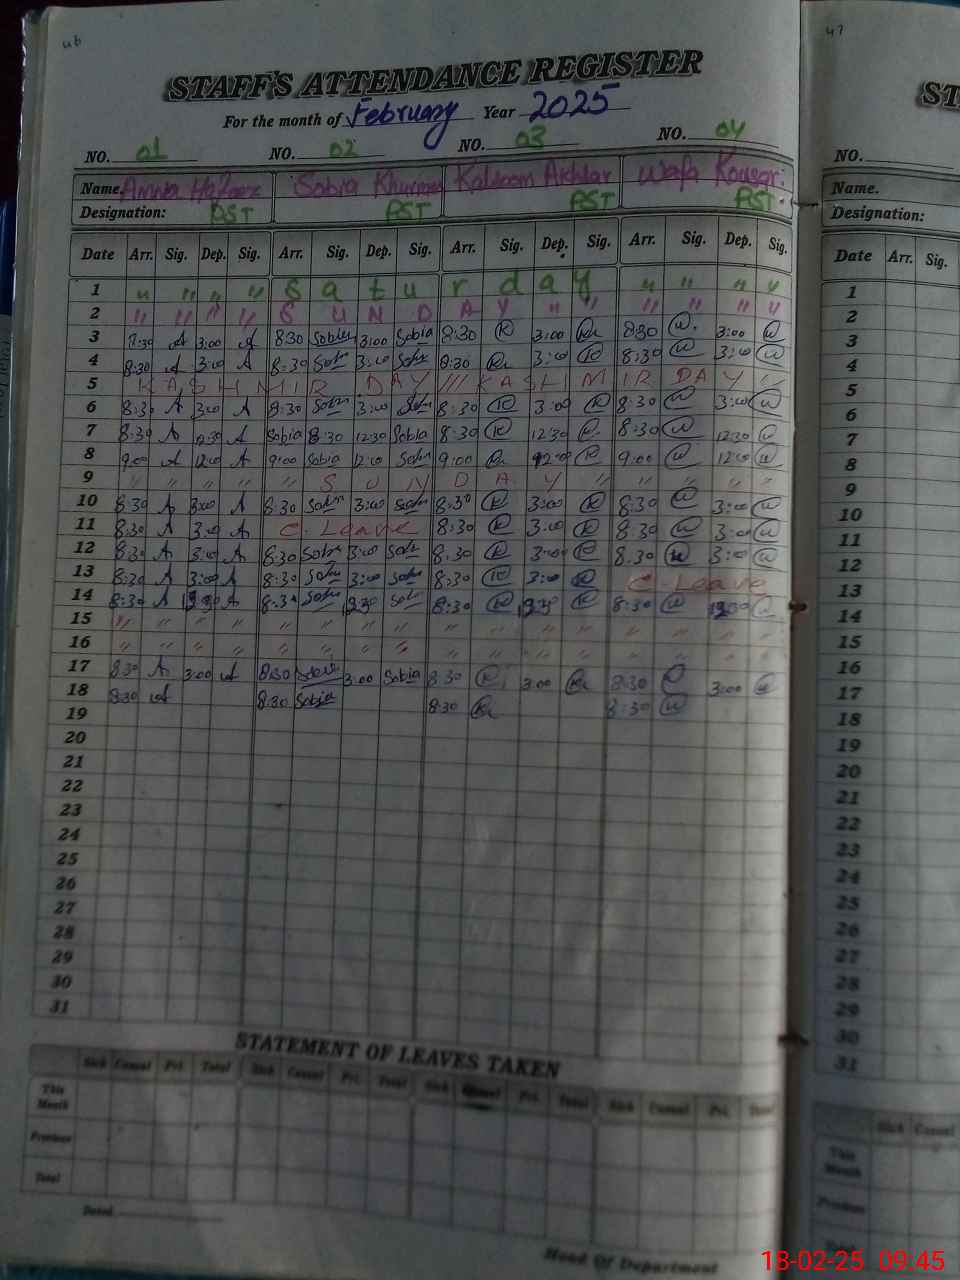 46
STAFF'S ATTENDANCE REGISTER
For the month of February Year 2025
NO. 01 NO. 02 NO. 03 NO. 04
Name. Amna Hafeez Sobia Khurram Kalsoom Akhtar Wafa Kousar
Designation: PST PST PST PST
Date Arr. Sig. Dep. Sig. Arr. Sig. Dep. Sig. Arr. Sig. Dep. Sig. Arr. Sig. Dep. Sig.
1 " " " " S a t u r d a y " " " "
2 " " " " S U N D A Y " " " " " "
3 8:30 A 3:00 A 8:30 Sobia 3:00 Sobia 8:30 K 3:00 K 8:30 W 3:00 W
4 8:30 A 3:00 A 8:30 Sobia 3:00 Sobia 8:30 K 3:00 K 8:30 W 3:00 W
5 KASHMIR DAY /// KASHMIR DAY "
6 8:30 A 3:00 A 8:30 Sobia 3:00 Sobia 8:30 K 3:00 K 8:30 W 3:00 W
7 8:30 A 12:30 A Sobia 8:30 12:30 Sobia 8:30 K 12:30 K 8:30 W 12:30 W
8 9:00 A 12:00 A 9:00 Sobia 12:00 Sobia 9:00 K 12:00 K 9:00 W 12:00 W
9 " " " " " S U N D A Y " " " " "
10 8:30 A 3:00 A 8:30 Sobia 3:00 Sobia 8:30 K 3:00 K 8:30 W 3:00 W
11 8:30 A 3:00 A C. Leave 8:30 K 3:00 K 8:30 W 3:00 W
12 8:30 A 3:00 A 8:30 Sobia 3:00 Sobia 8:30 K 3:00 K 8:30 W 3:00 W
13 8:30 A 3:00 A 8:30 Sobia 3:00 Sobia 8:30 K 3:00 K C. Leave
14 8:30 A 12:30 A 8:30 Sobia 12:30 Sobia 8:30 K 12:30 K 8:30 W 12:30 W
15 " " " " " " " " " " " " " " " "
16 " " " " " " " " " " " " " " " "
17 8:30 A 3:00 A 8:30 Sobia 3:00 Sobia 8:30 K 3:00 K 8:30 W 3:00 W
18 8:30 A 8:30 Sobia 8:30 K 8:30 W
19
20
21
22
23
24
25
26
27
28
29
30
31
STATEMENT OF LEAVES TAKEN
Sick Casual Pri. Total Sick Casual Pri. Total Sick Casual Pri. Total Sick Casual Pri. Total
This Month
Previous
Total
Dated
Head Of Department
47
ST
NO.
Name.
Designation:
Date Arr. Sig.
1
2
3
4
5
6
7
8
9
10
11
12
13
14
15
16
17
18
19
20
21
22
23
24
25
26
27
28
29
30
31
Sick Casual
This Month
Previous
Total
18-02-25 09:45